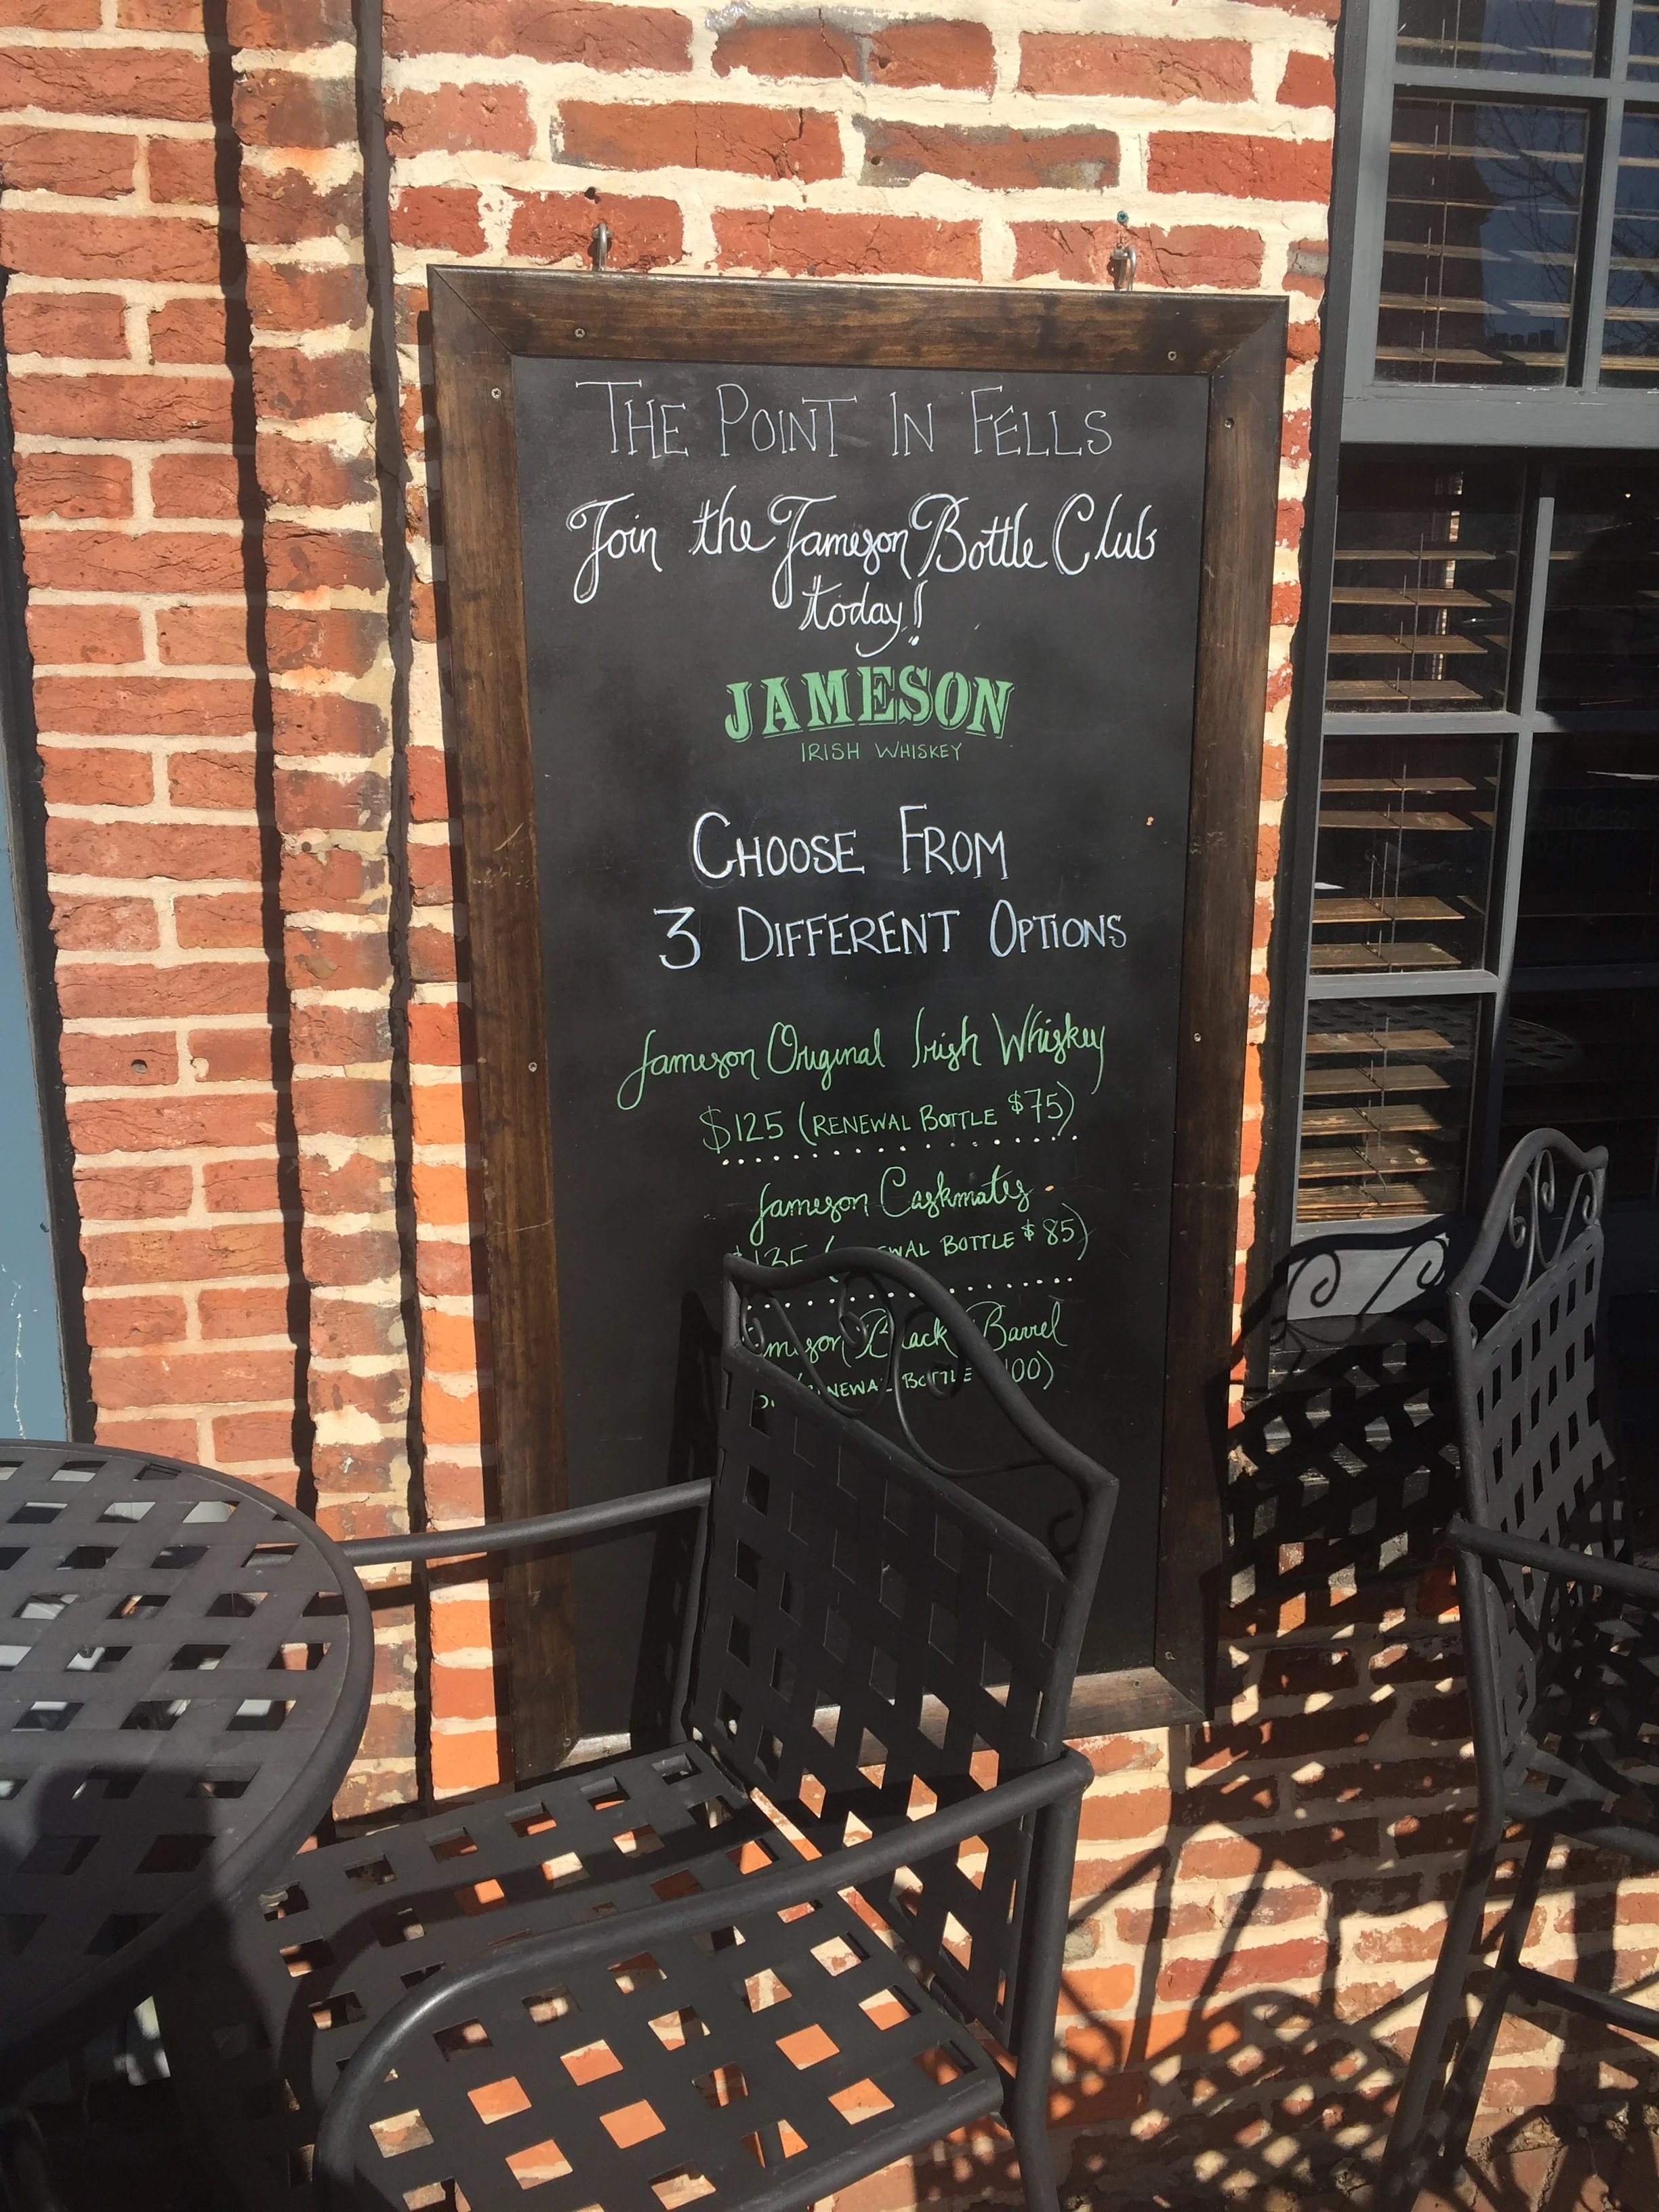 THE POINT IN FELLS
Join the Jameson Bottle Club
today!
JAMESON
IRISH WHISKEY
CHOOSE FROM
3 DIFFERENT OPTIONS
Jameson Original Irish Whiskey
$125 (RENEWAL BOTTLE $75)
Jameson Caskmates
$135 (RENEWAL BOTTLE $85)
Jameson Black Barrel
(RENEWAL BOTTLE